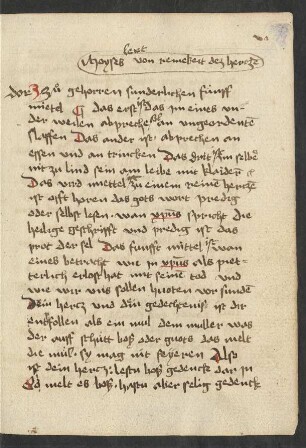 lert
Moyses von reinekeit dez hertze
dor Zů gehorren sunderlichen fünff
mittel Das erst ist das im eines un
der weilen abpreche an ungeordenten
slaffen Das ander ist abprechen an
essen und an trincken Das drit ist im selber
nit zu lind sein am leibe mit klaidern
Das vird mittel zu einem reinen hercze
ist offt horen das gots wort predig
oder selbst lesen wan xpus spricht die
heilige geschrifft und predig ist das
prot der sel Das fünfft mittel ist wan
eines betracht wie in xpus als
terlich erlost hat mit seinem tod und
wie wir uns sollen huoten vor sunden
Dein hercz und dein gedechtenis ist dir
entfallen als ein mül dem muller was
der auff schütt boß oder guots das melt
die mül sy mag nit feyeren Also
ist dein hercz lestu boß gedenck dar in
so melt es boß hastu aber selig gedenck